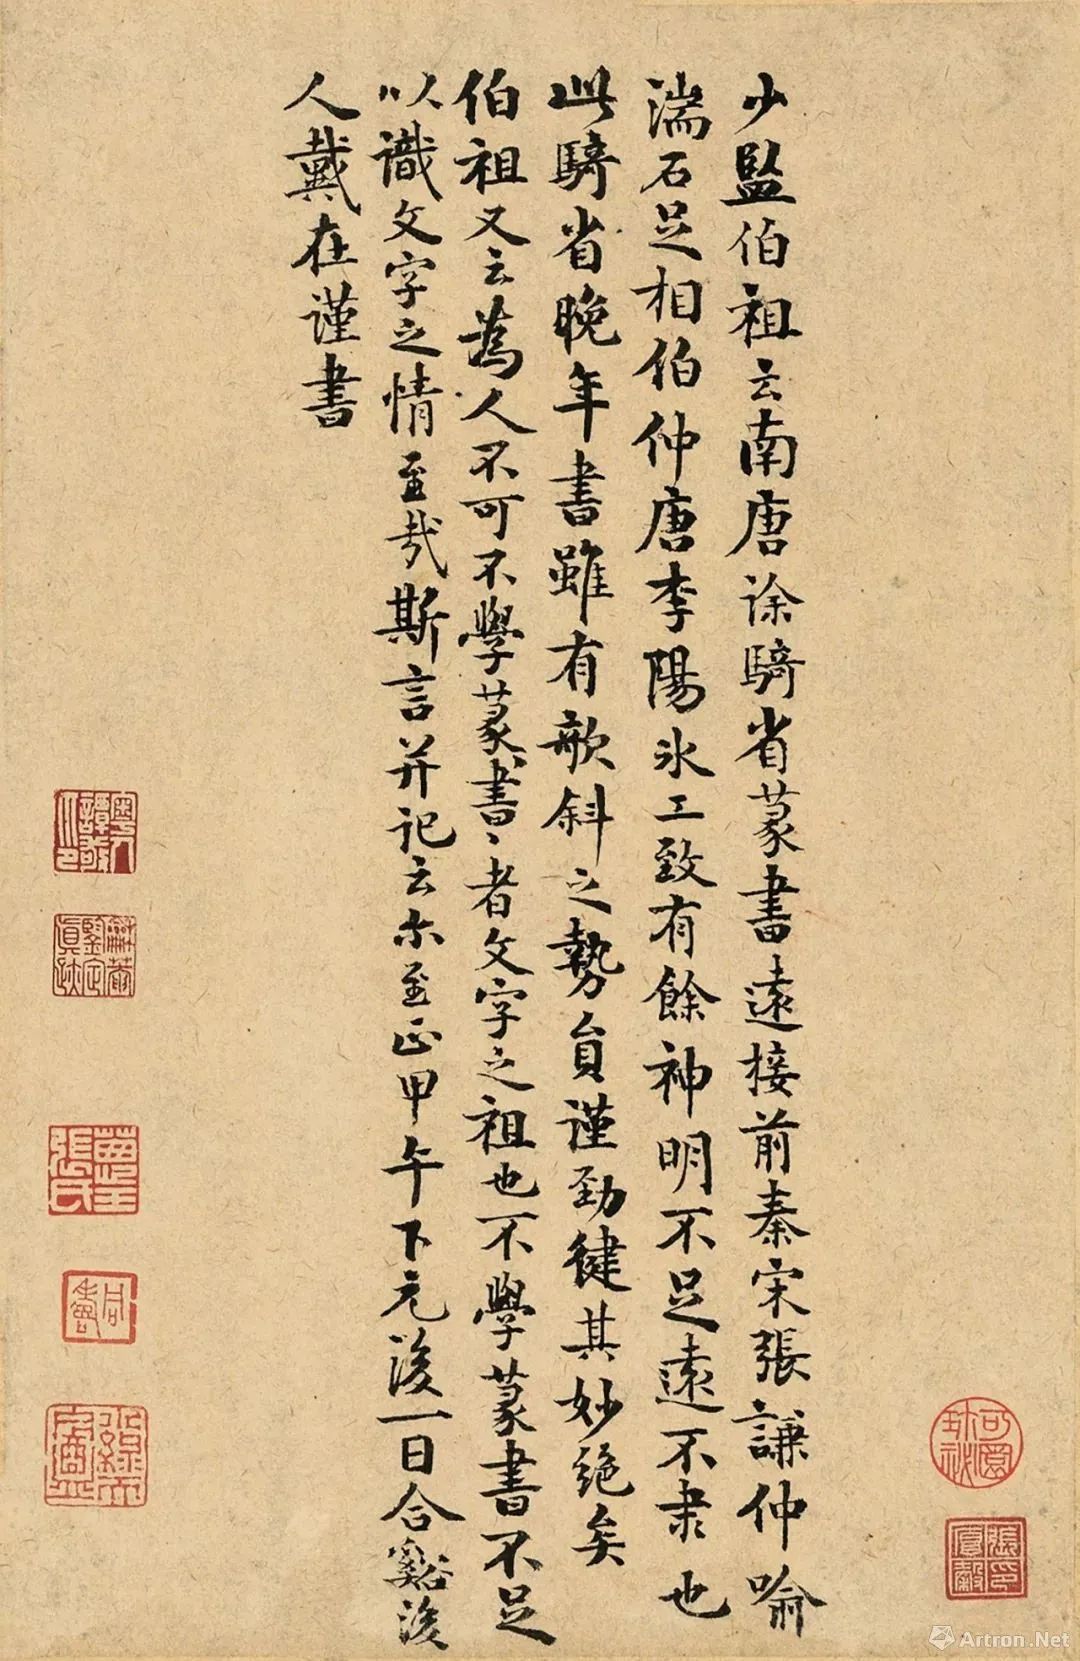 少監伯祖云南唐徐騎省篆書遠接前秦宋張謙仲喻
湍石足相伯仲唐李陽氷工致有餘神明不足遠不隶也
此騎省晚年書雖有欹斜之勢貟謹勁健其妙絕矣
伯祖又云為人不可不學篆書〻者文字之祖也不學篆書不足
以識文字之情至哉斯言并記云尒至正甲午下元後一日合谿後
人戴在謹書
Artron.Net